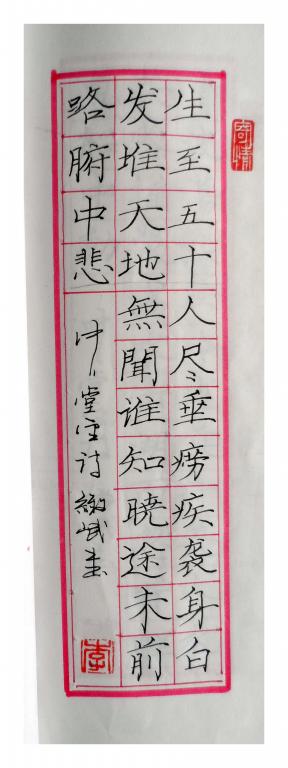 寄情
生至五十人尽垂痨疾袭身白
发堆天地無聞谁知晓途未前
路腑中悲
堂诗
李